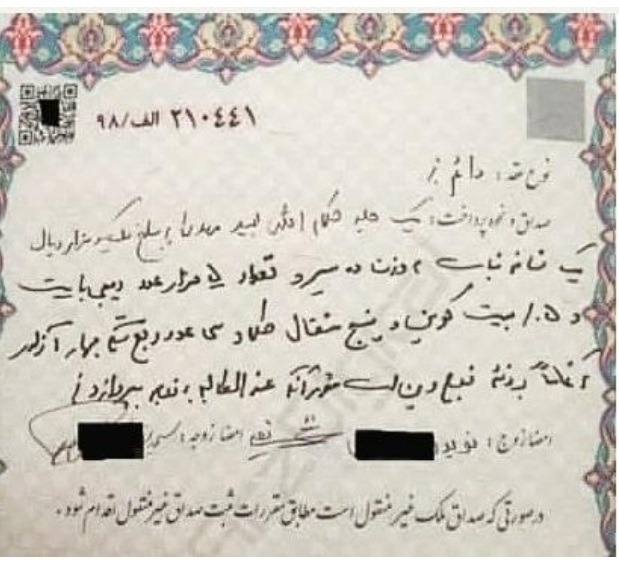 ۲۱۰۴۴۱ الف/۹۸
نوع عقد: دائم
صداق و نحوه پرداخت: یک جلد کلام الله مجید مهریه مبلغ یک هزار ریال
یک شاخه نبات به وزن ده سیر و تعداد ۵ هزار عدد دیجی بایت
و ۰.۵ بیت کوین و پنج مثقال طلا و سی عدد ربع سکه بهار آزادی
تماماً بر ذمه زوج دین است که عندالمطالبه به زوجه بپردازد
امضا زوج: نوید امضا زوجه:
درصورتی که صداق ملک غیرمنقول است مطابق مقررات ثبت صداق غیرمنقول اقدام شود.